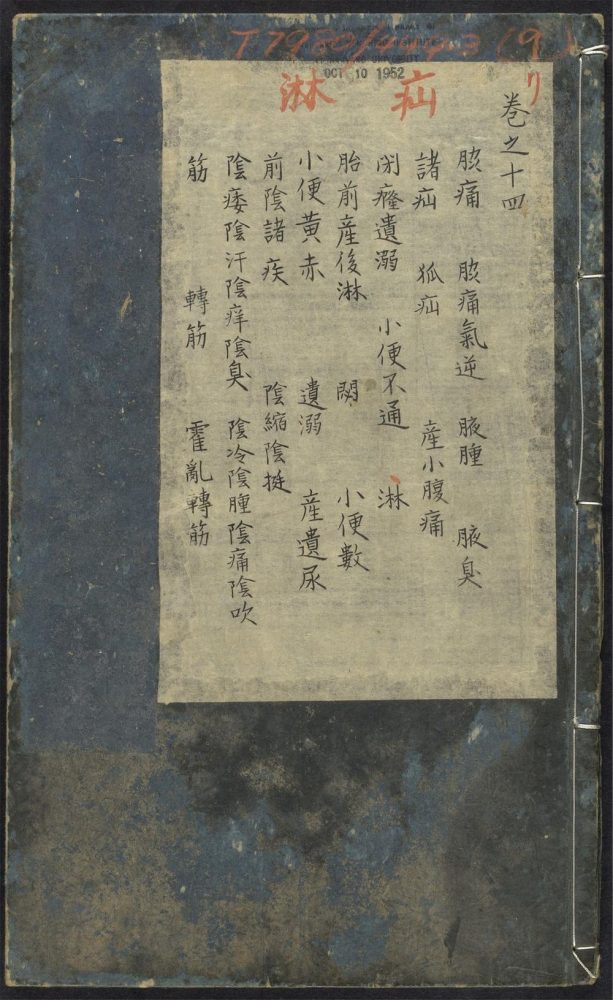 OCT 10 1952
リ
疝 淋
巻之十四
脇痛 脇痛氣逆 腋腫 腋臭
諸疝 狐疝 産小腹痛
閉癃遺溺 小便不通 淋
胎前産後淋 閟 小便數
小便黄赤 遺溺 産遺尿
前陰諸疾 陰縮陰挺
陰痿陰汗陰痒陰臭 陰冷陰腫陰痛陰吹
筋 轉筋 霍亂轉筋